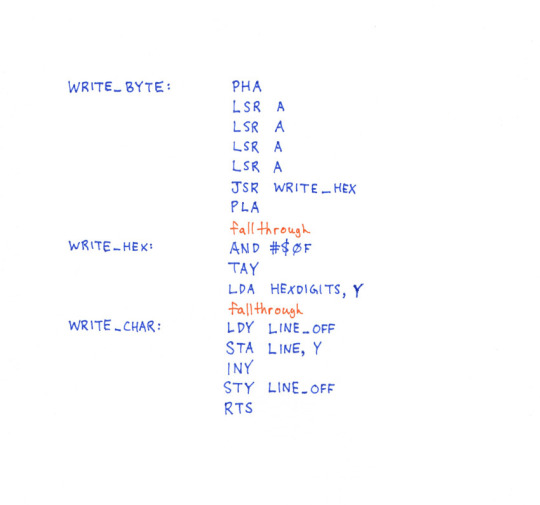 WRITE_BYTE: PHA
LSR A
LSR A
LSR A
LSR A
JSR WRITE_HEX
PLA
fallthrough
WRITE_HEX: AND #$0F
TAY
LDA HEXDIGITS, Y
fallthrough
WRITE_CHAR: LDY LINE_OFF
STA LINE, Y
INY
STY LINE_OFF
RTS